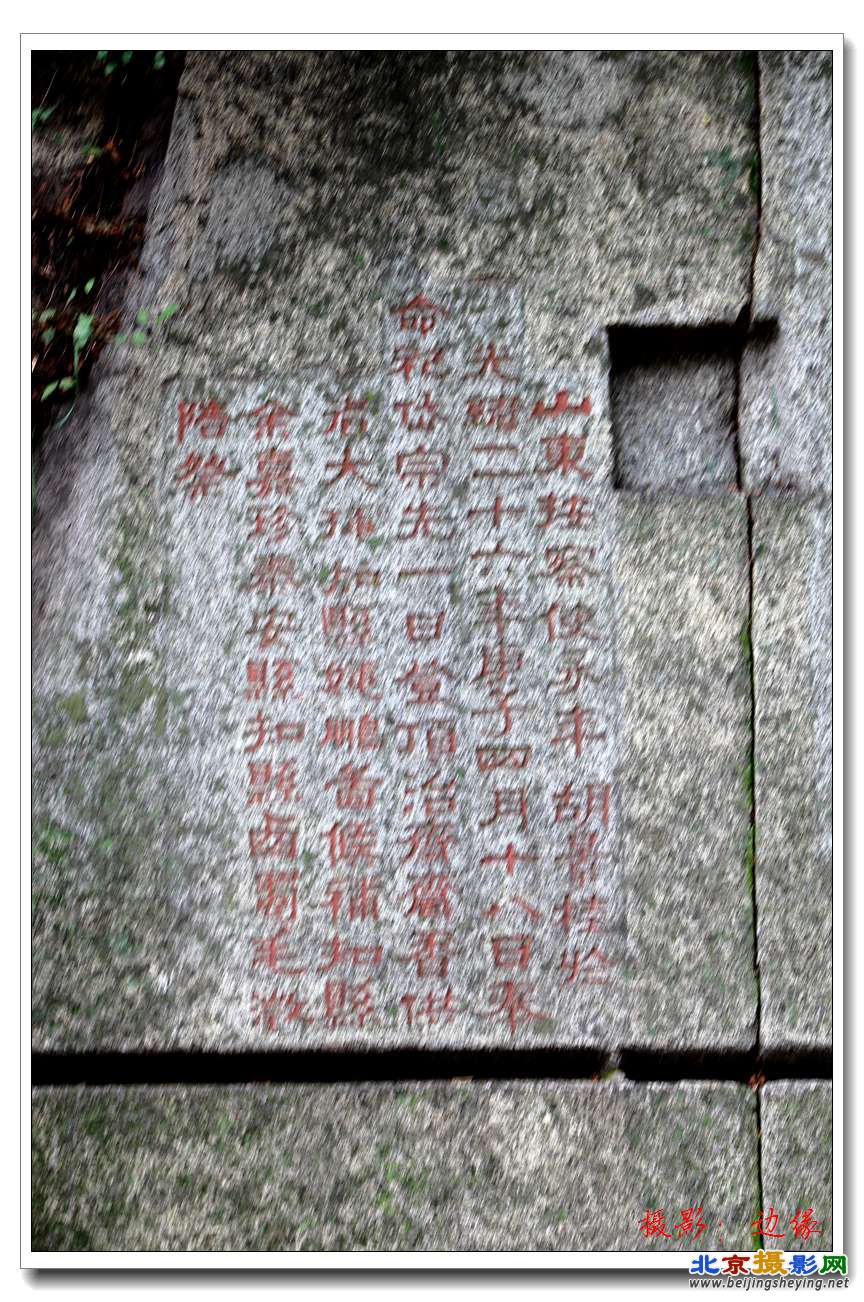 山東按察使永平胡景桂於
光緒二十六年庚子四月十八日奉
命祀岱宗先一日登頂治齋齋香供
者大 知縣姚鵬啚候補知縣
余嘉珍泰安縣知縣 毛澂
陪祭
摄影：边缘
北京摄影网
www.beijingsheying.net